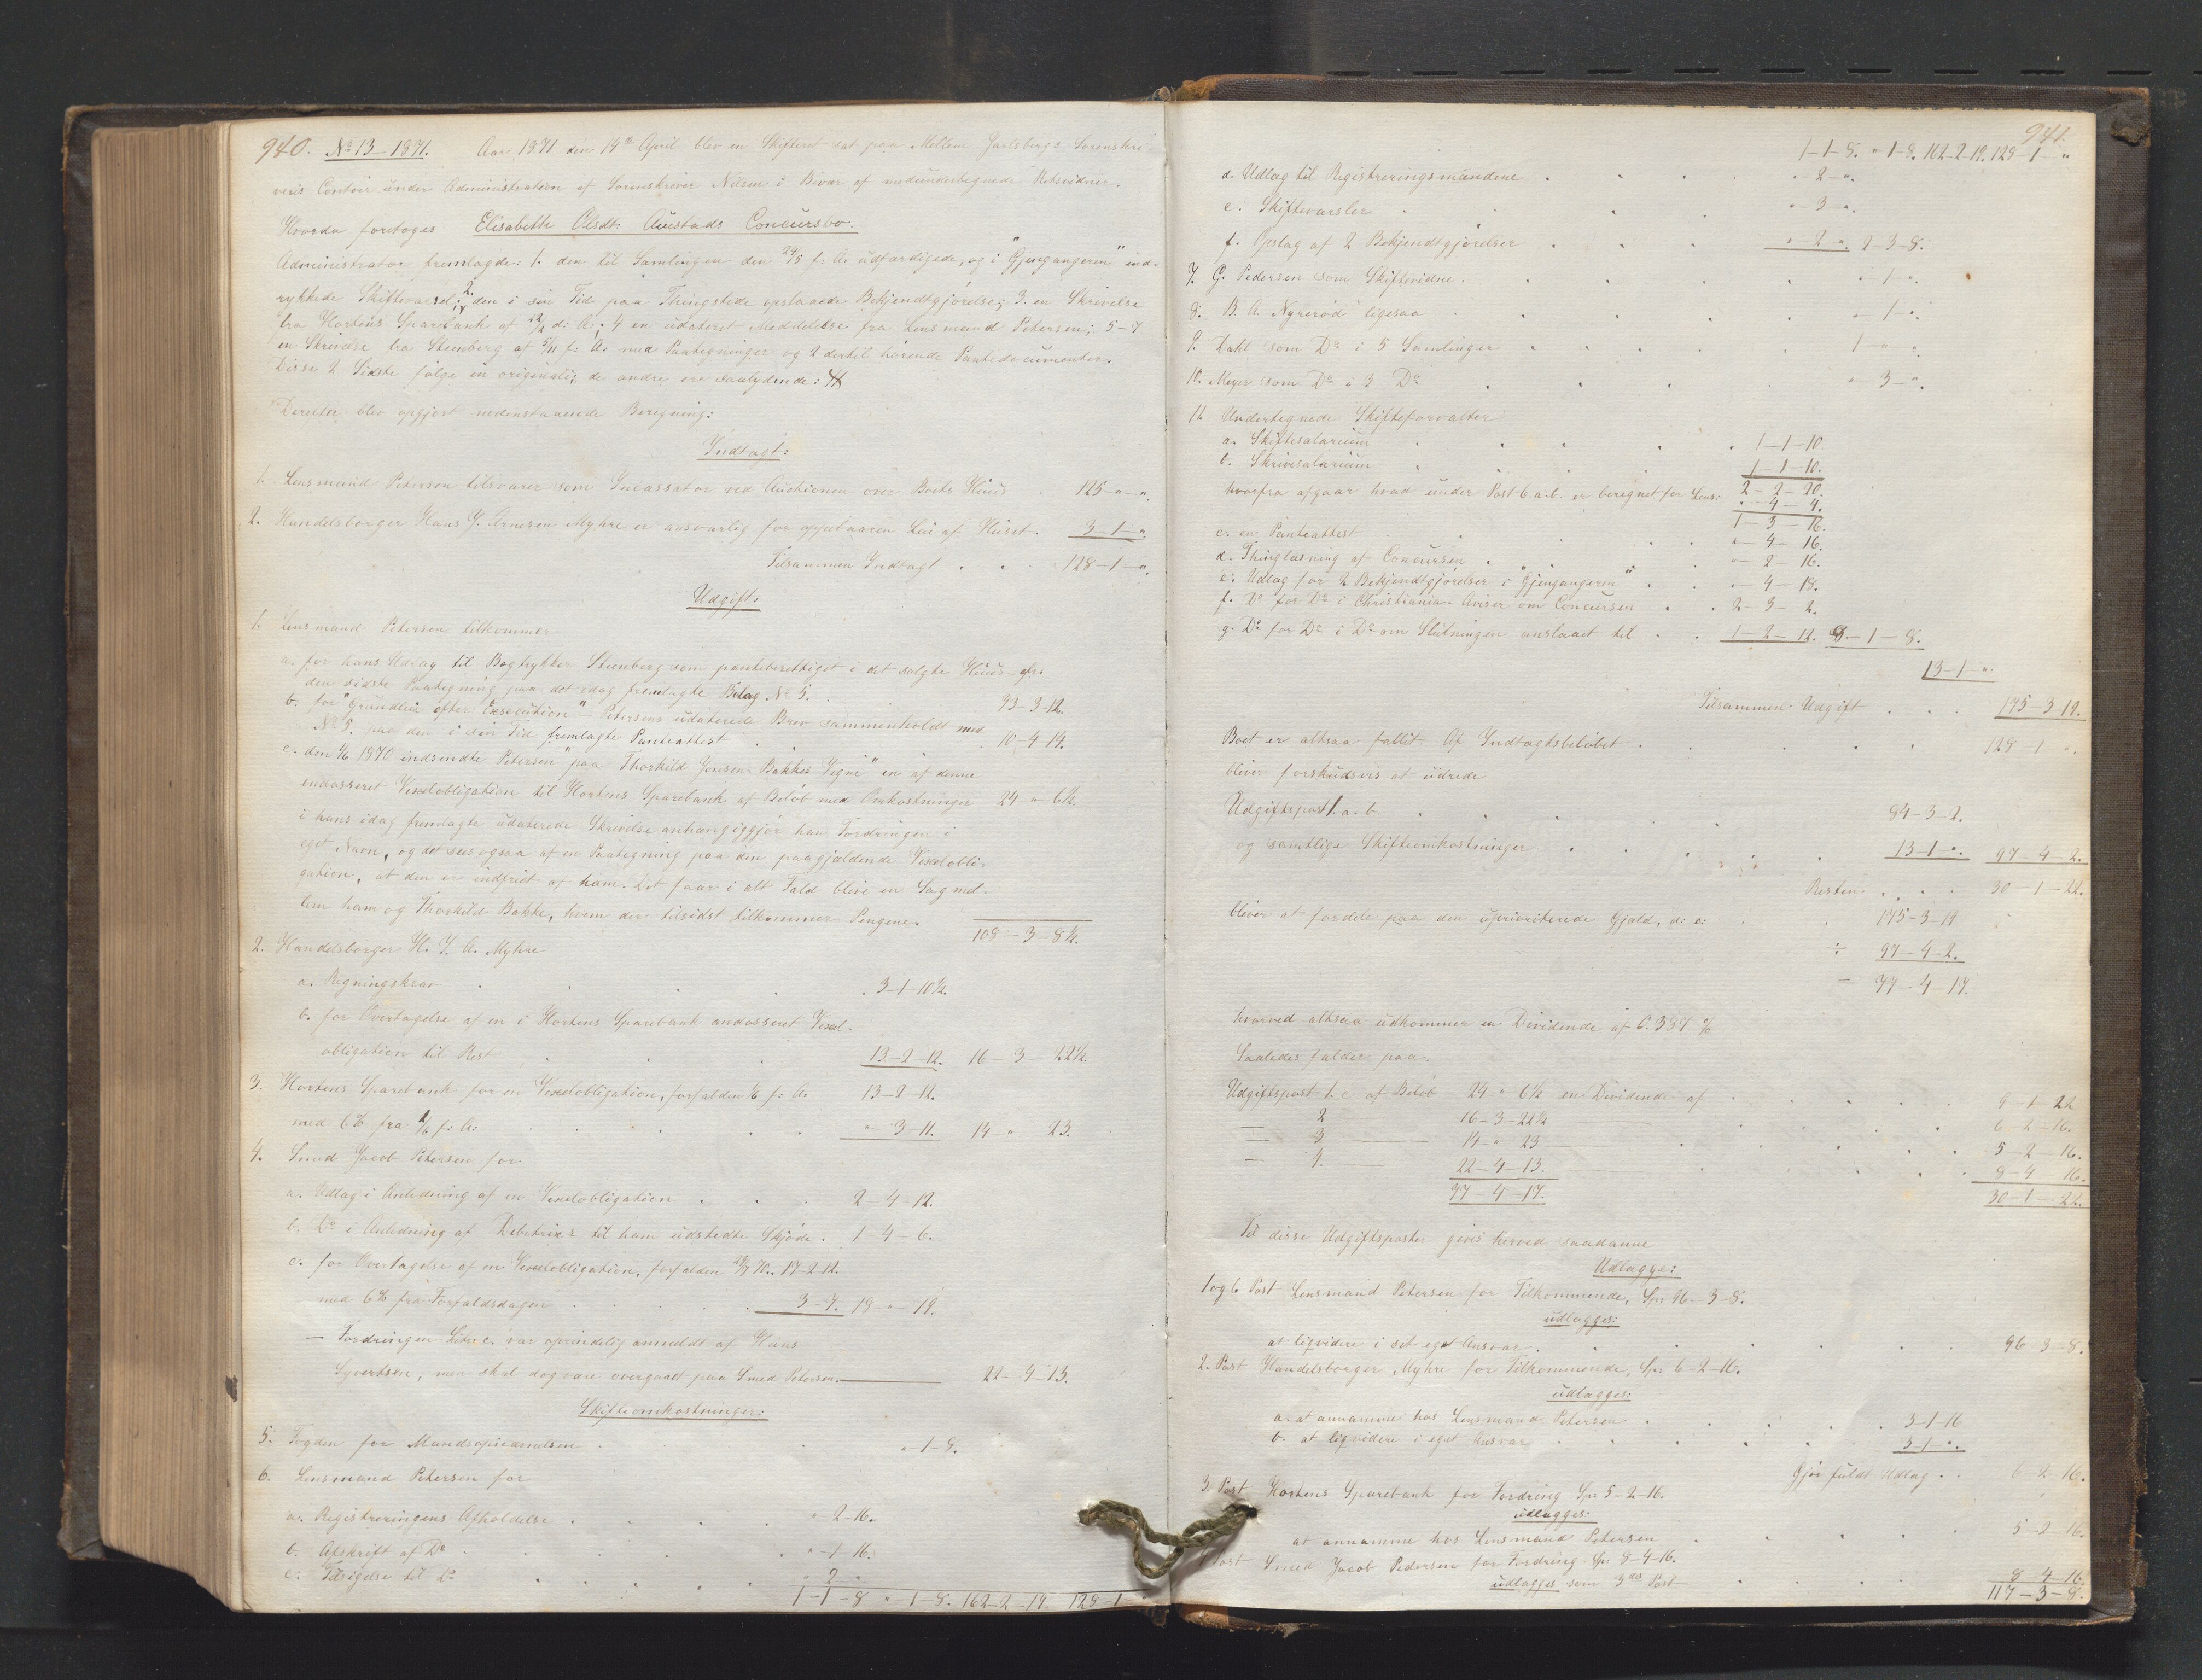 940. No 13 - 1871. Aar 1871 den 14de April blev en Skifteret sat paa Mellem Jarlsbergs Sorenskri-
vers Contoir under Administration af Sorenskriver Nilsen i Bivær af medundertegnede Retsvidner.
Hvorda foretoges Elisabeth Olsdt: Aüestads Concürsbo.
Administrator fremlagde: 1. den til Samlingen den 24/5 f. A. udfærdigede, og i "Gjengangeren" ind-
rykkede Skiftevarsel; 2. den i sin Tid paa Thingstede opslaaede Bekjendtgjørelse; 3. en Skrivelse
fra Hortens Sparebank af d: A:; 4 en udateret Meddelelse fra Lensmand Petersen; 5-7
en Skrivelse fra Steenberg af 5/11 f: A: med Paategninger og 2 dertil hørende Pantedocumenter.
Disse 2 Sidste følge in originali; de andre ere saalydende:
Derefter blev opgjort nedenstaaende Beregning:
Indtægt:
1. Lensmand Petersen tilsvarer som Incassator ved Auctionen over Boets Huus . 125-"-".
2. Handelsborger Hans J. Arnesen Myhre er ansvarlig for oppebaaren Leie af Huset. 3-1-".
Tilsammen Indtægt . . . 128-1-".
Udgift:
1. Lensmand Petersen tilkommer
a. for hans Udlæg til Bogtrykker Steenberg som panteberettiget i det solgte Huus - efr.
den sidste Paategning paa det idag fremlagte Bilag No 5. . 73-3-12.
b. for "Grundleie efter Execution" - Petersens udaterede Brev sammenholdt med
No 5. paa den i sin Tid fremlagte Panteattest . . 10-4-14.
c. den 1/6 1870 indsendte Petersen "paa Thorkild Jonsen Bakkes Vegne" en af denne
endosseret Vexelobligation til Hortens Sparebank af Beløb med Omkostninger 24-"-6½.
i hans idag fremlagte udaterede Skrivelse anhængiggjør han Fordringen i
eget Navn, og det sees ogsaa af en Paategning paa den paagjældende Vexelobli-
gation, at den er indfriet af ham. Det faar i alt Fald blive en Sag mel-
lem ham og Thorkild Bakke, hvem der tilsidst tilkommer Pengene. 108-3-8½.
2. Handelsborger H. J. A. Myhre
a. Regningskrav . . . . 3-1-10½.
b. for Overtagelse af en i Hortens Sparebank endosseret Vexel-
obligation til Rest . . 13-2-12. 16-3-22½.
3. Hortens Sparebank for en Vexelobligation, forfalden 1/6 f: A. 13-2-12.
med 6% fra 1/6 f: A: . . . . "-3-11. 14-"-23.
4. Smed Jacob Petersen for
a. Udlæg i Anledning af en Vexelobligation . . . 2-4-12.
b. Do i Anledning af Debitrix's til ham udstedte Skjøde . 1-4-6.
c. for Overtagelse af en Vexelobligation, forfalden 70.. 17-2-12.
med 6% fra Forfaldsdagen . . . . 3-7. 18-"-19.
- Fordringen Litr. c. var oprindelig anmeldt af Hans
Syvertsen, men skal dog være overgaaet paa Smed Petersen. 22-4-13.
Skifteomkostninger:
5. Fogden for Mandsopnævnelsen . . . "-1-8.
6. Lensmand Petersen for
a. Registreringens Afholdelse . . . . "-2-16.
b. Afskrift af Do . . . . "-1-16.
c. Tilsigelse til Do . . . . "-2-".
1-1-8 "-1-8. 162-2-19. 128-1-"
941.
1-1-8. "-1-8. 162-2-19. 128-1-"
d. Udlæg til Registreringsmændene . . . . "-2-".
e. Skiftevarsler . . . . "-3-".
f. Opslag af 2 Bekjendtgjørelser . . . "-2-". 2-3-8.
7. G. Pedersen som Skiftevidne . . . . "-1-".
8. B. A. Nyrerød ligesaa . . . . "-1-".
9. Dahl som Do i 5 Samlinger . . . . 1-"-".
10. Meyer som Do i 3 Do . . . . "-3-".
11. Undertegnede Skifteforvalter
a. Skiftesalarium . . . . 1-1-10.
b. Skrivesalarium . . . . 1-1-10.
hvorfra afgaar hvad under Post 6 a.b. er beregnet for Lens: 2-2-20.
"-4-4.
1-3-16.
c. en Panteattest . . . . "-4-16.
d. Thinglæsning af Concursen . . . . "-2-16.
e. Udlæg for 2 Bekjendtgjørelser i "Gjengangeren" . . "-4-18.
f. Do for Do i Christiania Aviser om Concursen . . 2-3-2.
g. Do for Do i Do om Slutningen anslaaet til . . 1-2-12. 8-1-8.
13-1-".
Tilsammen Udgift . . . 175-3-19.
Boet er altsaa fallit. Af Indtægtsbeløbet . . . . 128-1-".
bliver forskudsvis at udrede
Udgiftspost 1. a. b. . . . 84-3-2.
og samtlige Skifteomkostninger . . . . 13-1-". 97-4-2.
Resten . . . . 30-1-22.
bliver at fordele paa den uprioriterede Gjæld, d: e: . . 175-3-19
÷ 97-4-2.
= 77-4-17.
hvorved altsaa udkommer en Dividende af 0.387 %
Saaledes falder paa:
Udgiftspost 1. c. af Beløb 24-"-6½ en Dividende af . . . . 9-1-22
— 2 — 16-3-22½ — . . . . 6-2-16.
— 3 — 14-"-23 — . . . . 5-2-16.
— 4. — 22-4-13. — . . . . 8-4-16.
77-4-17. 30-1-22.
Til disse Udgiftsposter gives herved saadanne
Udlægge:
1 og 6 Post Lensmand Petersen for Tilkommende, Sp: 96-3-8.
udlægges:
at liqvidere i sit eget Ansvar . . . . 96-3-8.
2. Post Handelsborger Myhre for Tilkommende, Sp: 6-2-16.
udlægges:
a. at annamme hos Lensmand Petersen . . . . 3-1-16
b. at liqvidere i eget Ansvar . . . . 3-1-".
Gjør fuldt Udlæg . . 6-2-16.
3. Post Hortens Sparebank for Fordring Sp: 5-2-16.
udlægges:
at annamme hos Lensmand Petersen . . . . 5-2-16.
Post Smed Jacob Pedersen for Fordring Sp: 8-4-16.
udlægges som 3die Post . . . . 8-4-16.
117-3-8.